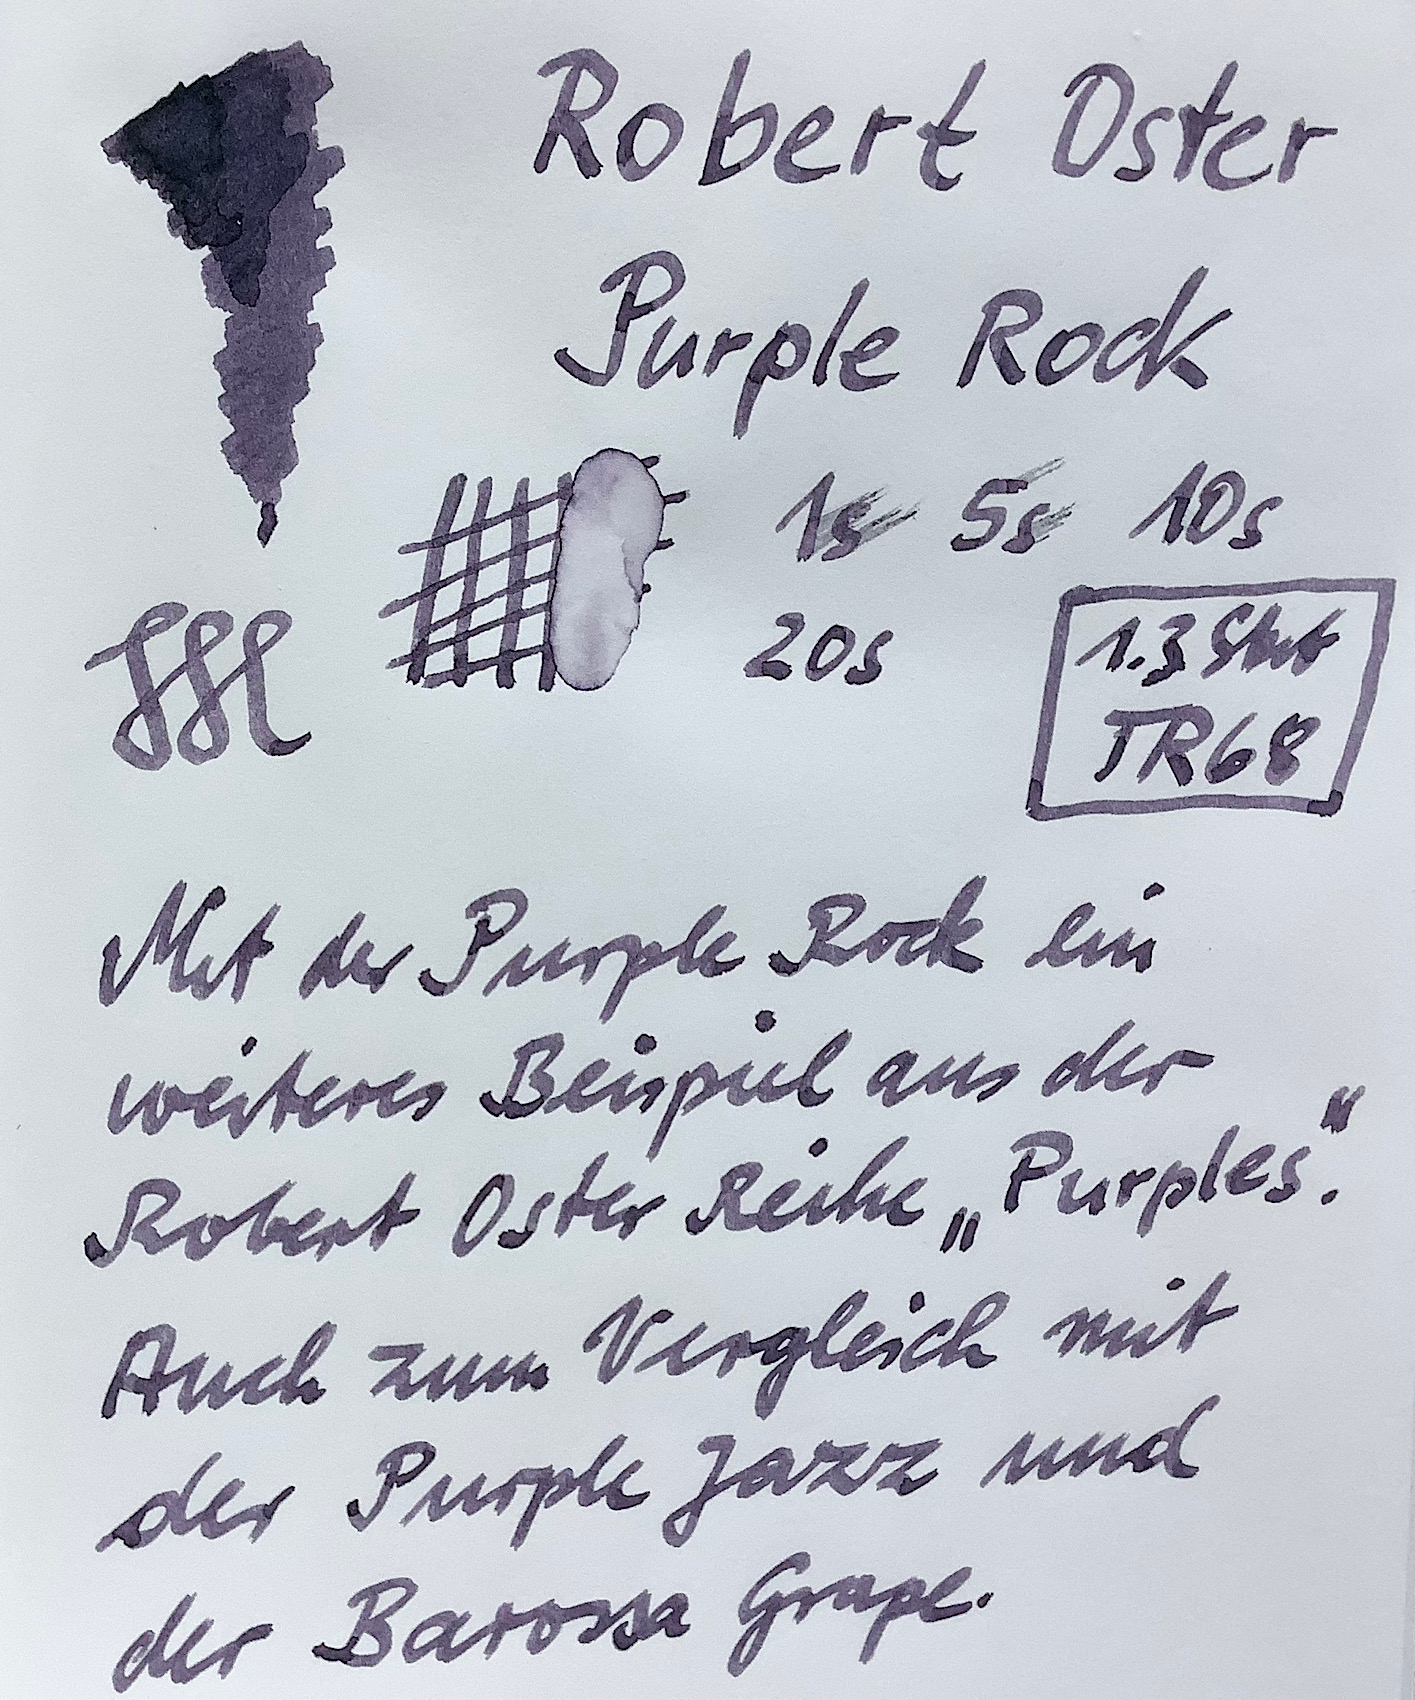 Robert Oster
Purple Rock
1s 5s 10s
20s
1.3 Stub
TR68
Mit der Purple Rock ein
weiteres Beispiel aus der
Robert Oster Reihe „Purples“.
Auch zum Vergleich mit
der Purple Jazz und
der Barossa Grape.